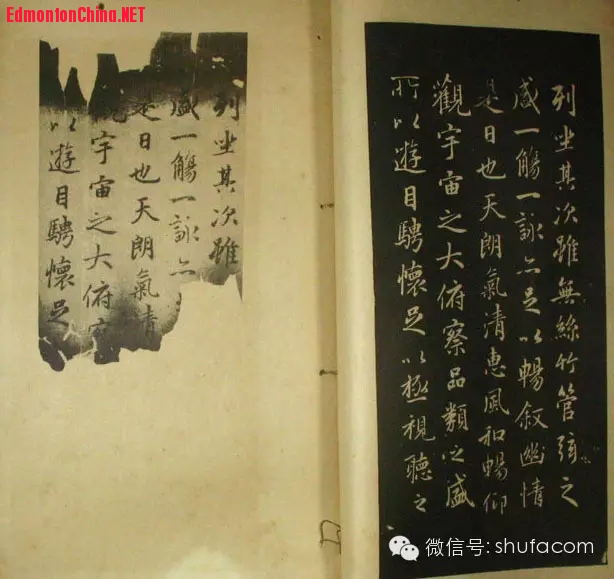 EdmontonChina.NET
列坐其次雖無絲竹管弦之
盛一觴一詠亦足以暢敘幽情
是日也天朗氣清惠風和暢仰
觀宇宙之大俯察品類之盛
所以遊目騁懷足以極視聽之
列坐其次雖
盛一觴一詠亦
是日也天朗氣清
觀宇宙之大俯察
以遊目騁懷足
微信号: shufacom